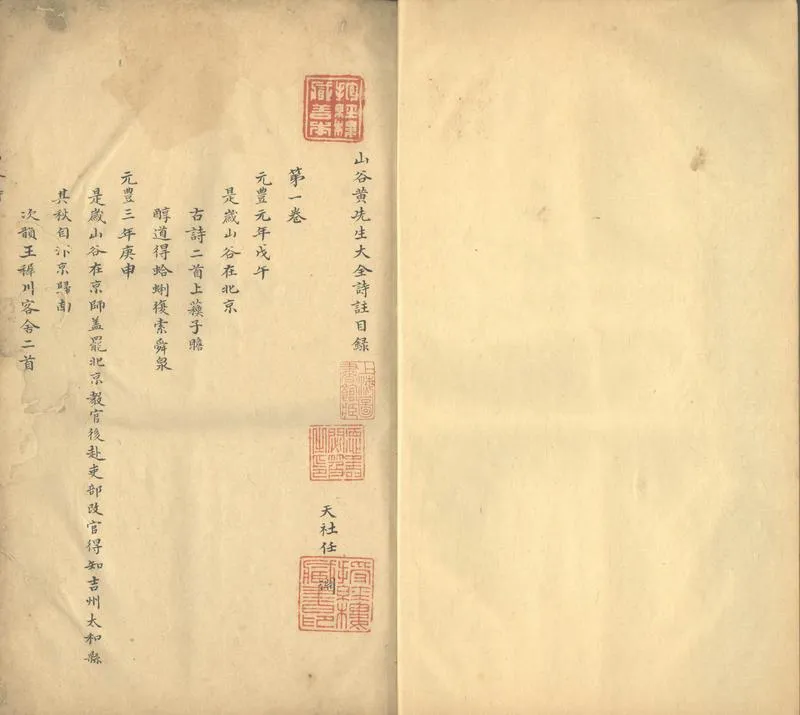 抱經樓藏善本
山谷黄先生大全詩註目録
上海圖書館藏
天社任淵
第一卷
元豐元年戊午
是歲山谷在北京
古詩二首上蘓子瞻
醇道得蛤蜊復索舜泉
元豐三年庚申
是歲山谷在京師蓋罷北京教官後赴吏部改官得知吉州太和縣
其秋自汴京歸南
次韻王稚川客舍二首